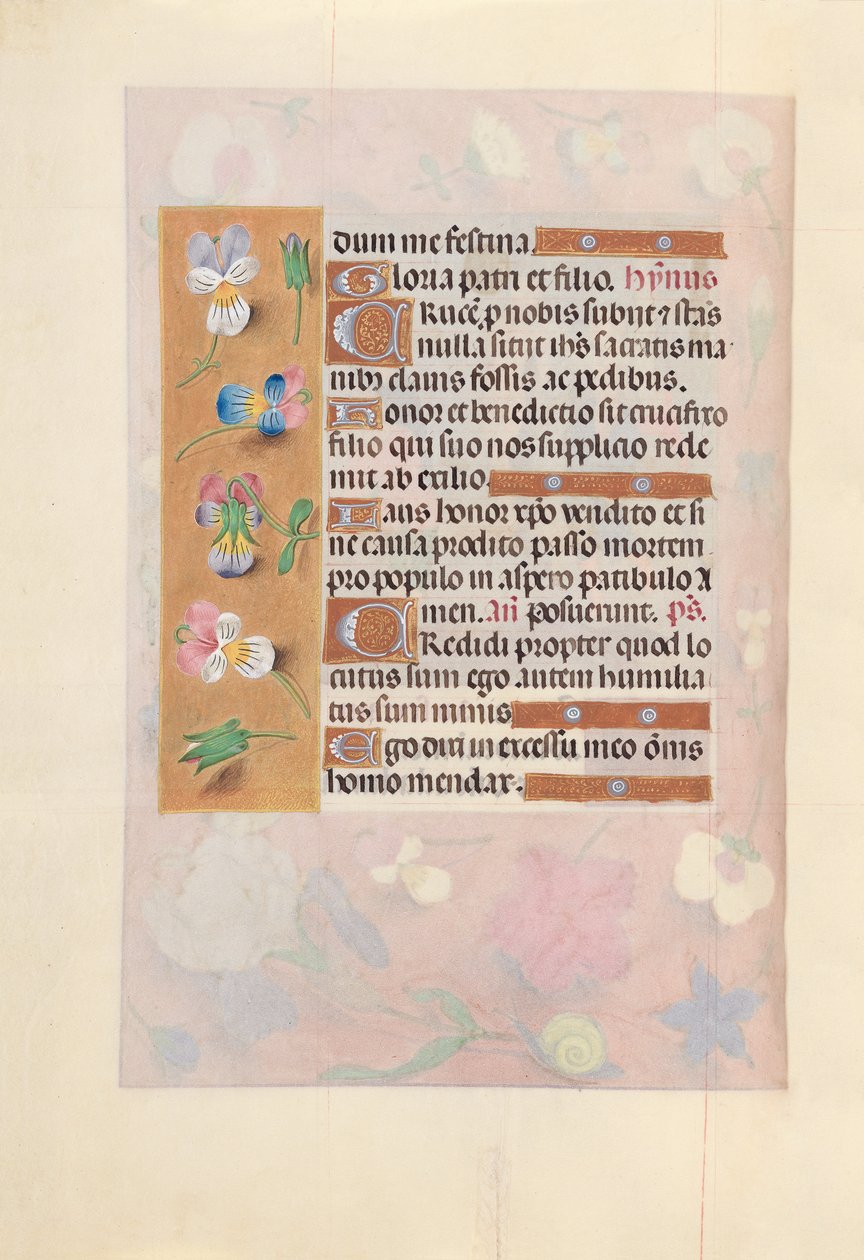 dum me festina.
Gloria patri et filio. hȳnus
CRucē p nobis subijt ⁊ stās
nulla sitijt ihs sacratis ma
nibꝫ clauis fossis ac pedibus.
Honor et benedictio sit crucifixo
filio qui suo nos supplicio rede
mit ab exilio.
Laus honor xp̄o vendito et si
ne causa prodito passo mortem
pro populo in aspero patibulo A
men. añ posuerunt. ps̄.
CRedidi propter quod lo
cutus sum ego autem humilia
tus sum nimis
Ego dixi in excessu meo ōnis
homo mendax.